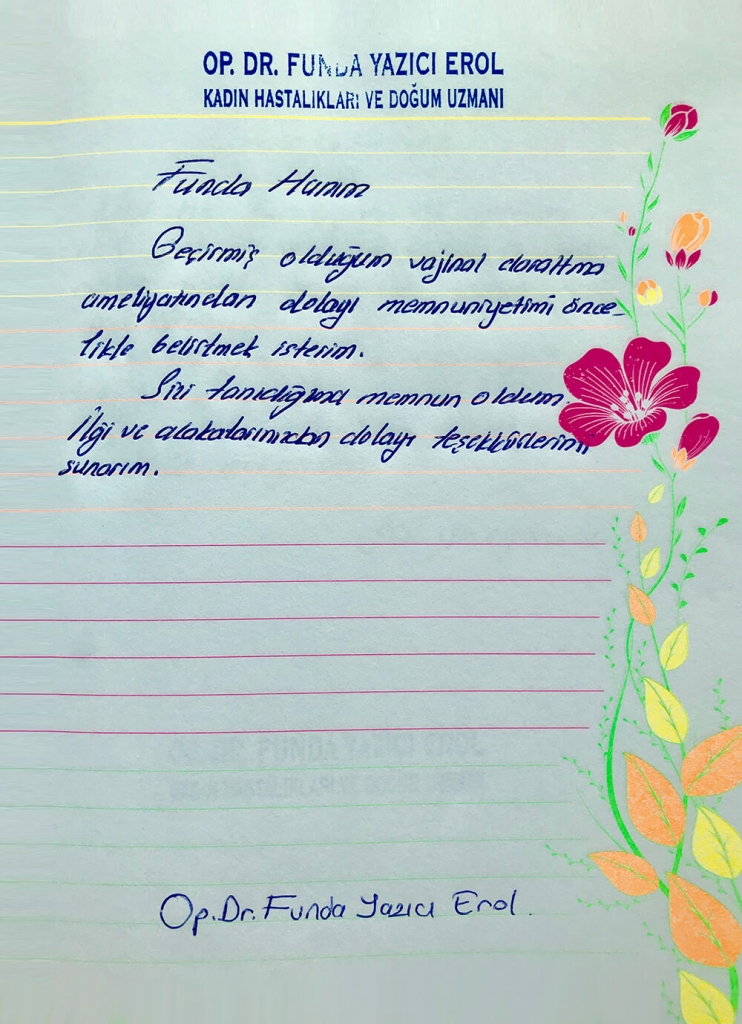 OP. DR. FUNDA YAZICI EROL
KADIN HASTALIKLARI VE DOĞUM UZMANI
Funda Hanım
Geçirmiş olduğum vajinal daraltma
ameliyatından dolayı memnuniyetimi önce-
likle belirtmek isterim.
Sizi tanıdığıma memnun oldum.
İlgi ve alakalarınızdan dolayı teşekkürlerimi
sunarım.
OP. DR. FUNDA YAZICI EROL
KADIN HASTALIKLARI VE DOĞUM UZMANI
Op.Dr. Funda Yazıcı Erol.